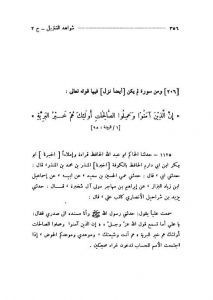 ٣٥٦
شواهد التنزيل ــ ج ٢
[٢٠٦] ومن سورة لم يكن [أيضاً نزل] فيها قوله تعالى :
« إِنَّ الَّذِينَ آمَنُوا وَعَمِلُوا الصَّالِحَاتِ أُولَئِكَ هُمْ خَيْرُ الْبَرِيَّةِ »
١١٢٥ ــ حدثنا الحاكم أبو عبد الله الحافظ قراءة وإملاءاً [أخبرنا] أبو
بكر ابن أبي دارم الحافظ بالكوفة [أخبرنا] المنذر بن محمد بن المنذر قال :
حدثني أبي قال : حدثني عمي الحسين بن سعيد عن أبيه عن إسماعيل
ابن زياد البزاز عن إبراهيم بن مهاجر مولى آل شخبرة قال : حدثني
يزيد بن شراحيل الأنصاري كاتب علي قال :
سمعت علياً يقول: حدثني رسول الله وأنا مسنده إلى صدري فقال:
يا علي أما تسمع قول الله عزّ وجلّ : « إن الذين آمنوا وعملوا الصالحات
أولئك هم خير البرية » هم أنت وشيعتك وموعدي وموعدكم الحوض إذا
اجتمعت الأمم للحساب تدعون غراء محجلين .